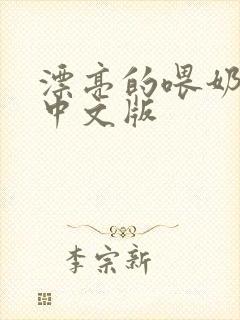 漂亮的喂奶
中文版
李宗新